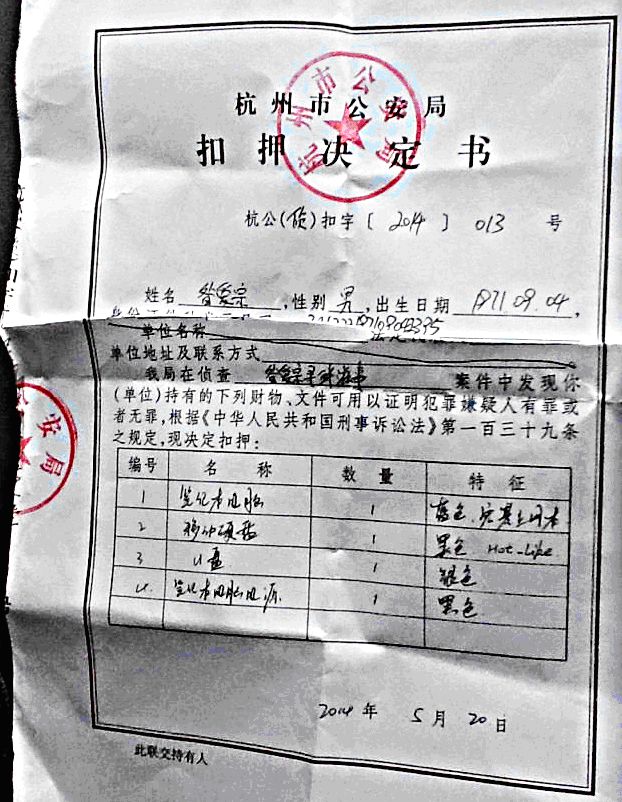 杭州市公安局
扣押决定书
杭公(侦)扣字〔2014〕013号
姓名 昝爱宗,性别男,出生日期1971.09.04,
单位名称
单位地址及联系方式
我局在侦查 昝爱宗 案件中发现你
(单位)持有的下列财物、文件可用以证明犯罪嫌疑人有罪或
者无罪,根据《中华人民共和国刑事诉讼法》第一百三十九条
之规定,现决定扣押:
编号 名称 数量 特征
1 笔记本电脑 1 蓝色、宏碁上网本
2 移动硬盘 1 黑色 Hot-Like
3 U盘 1 银色
4 笔记本电脑电源 1 黑色
2014年5月20日
此联交持有人
杭州市公安局
公安局